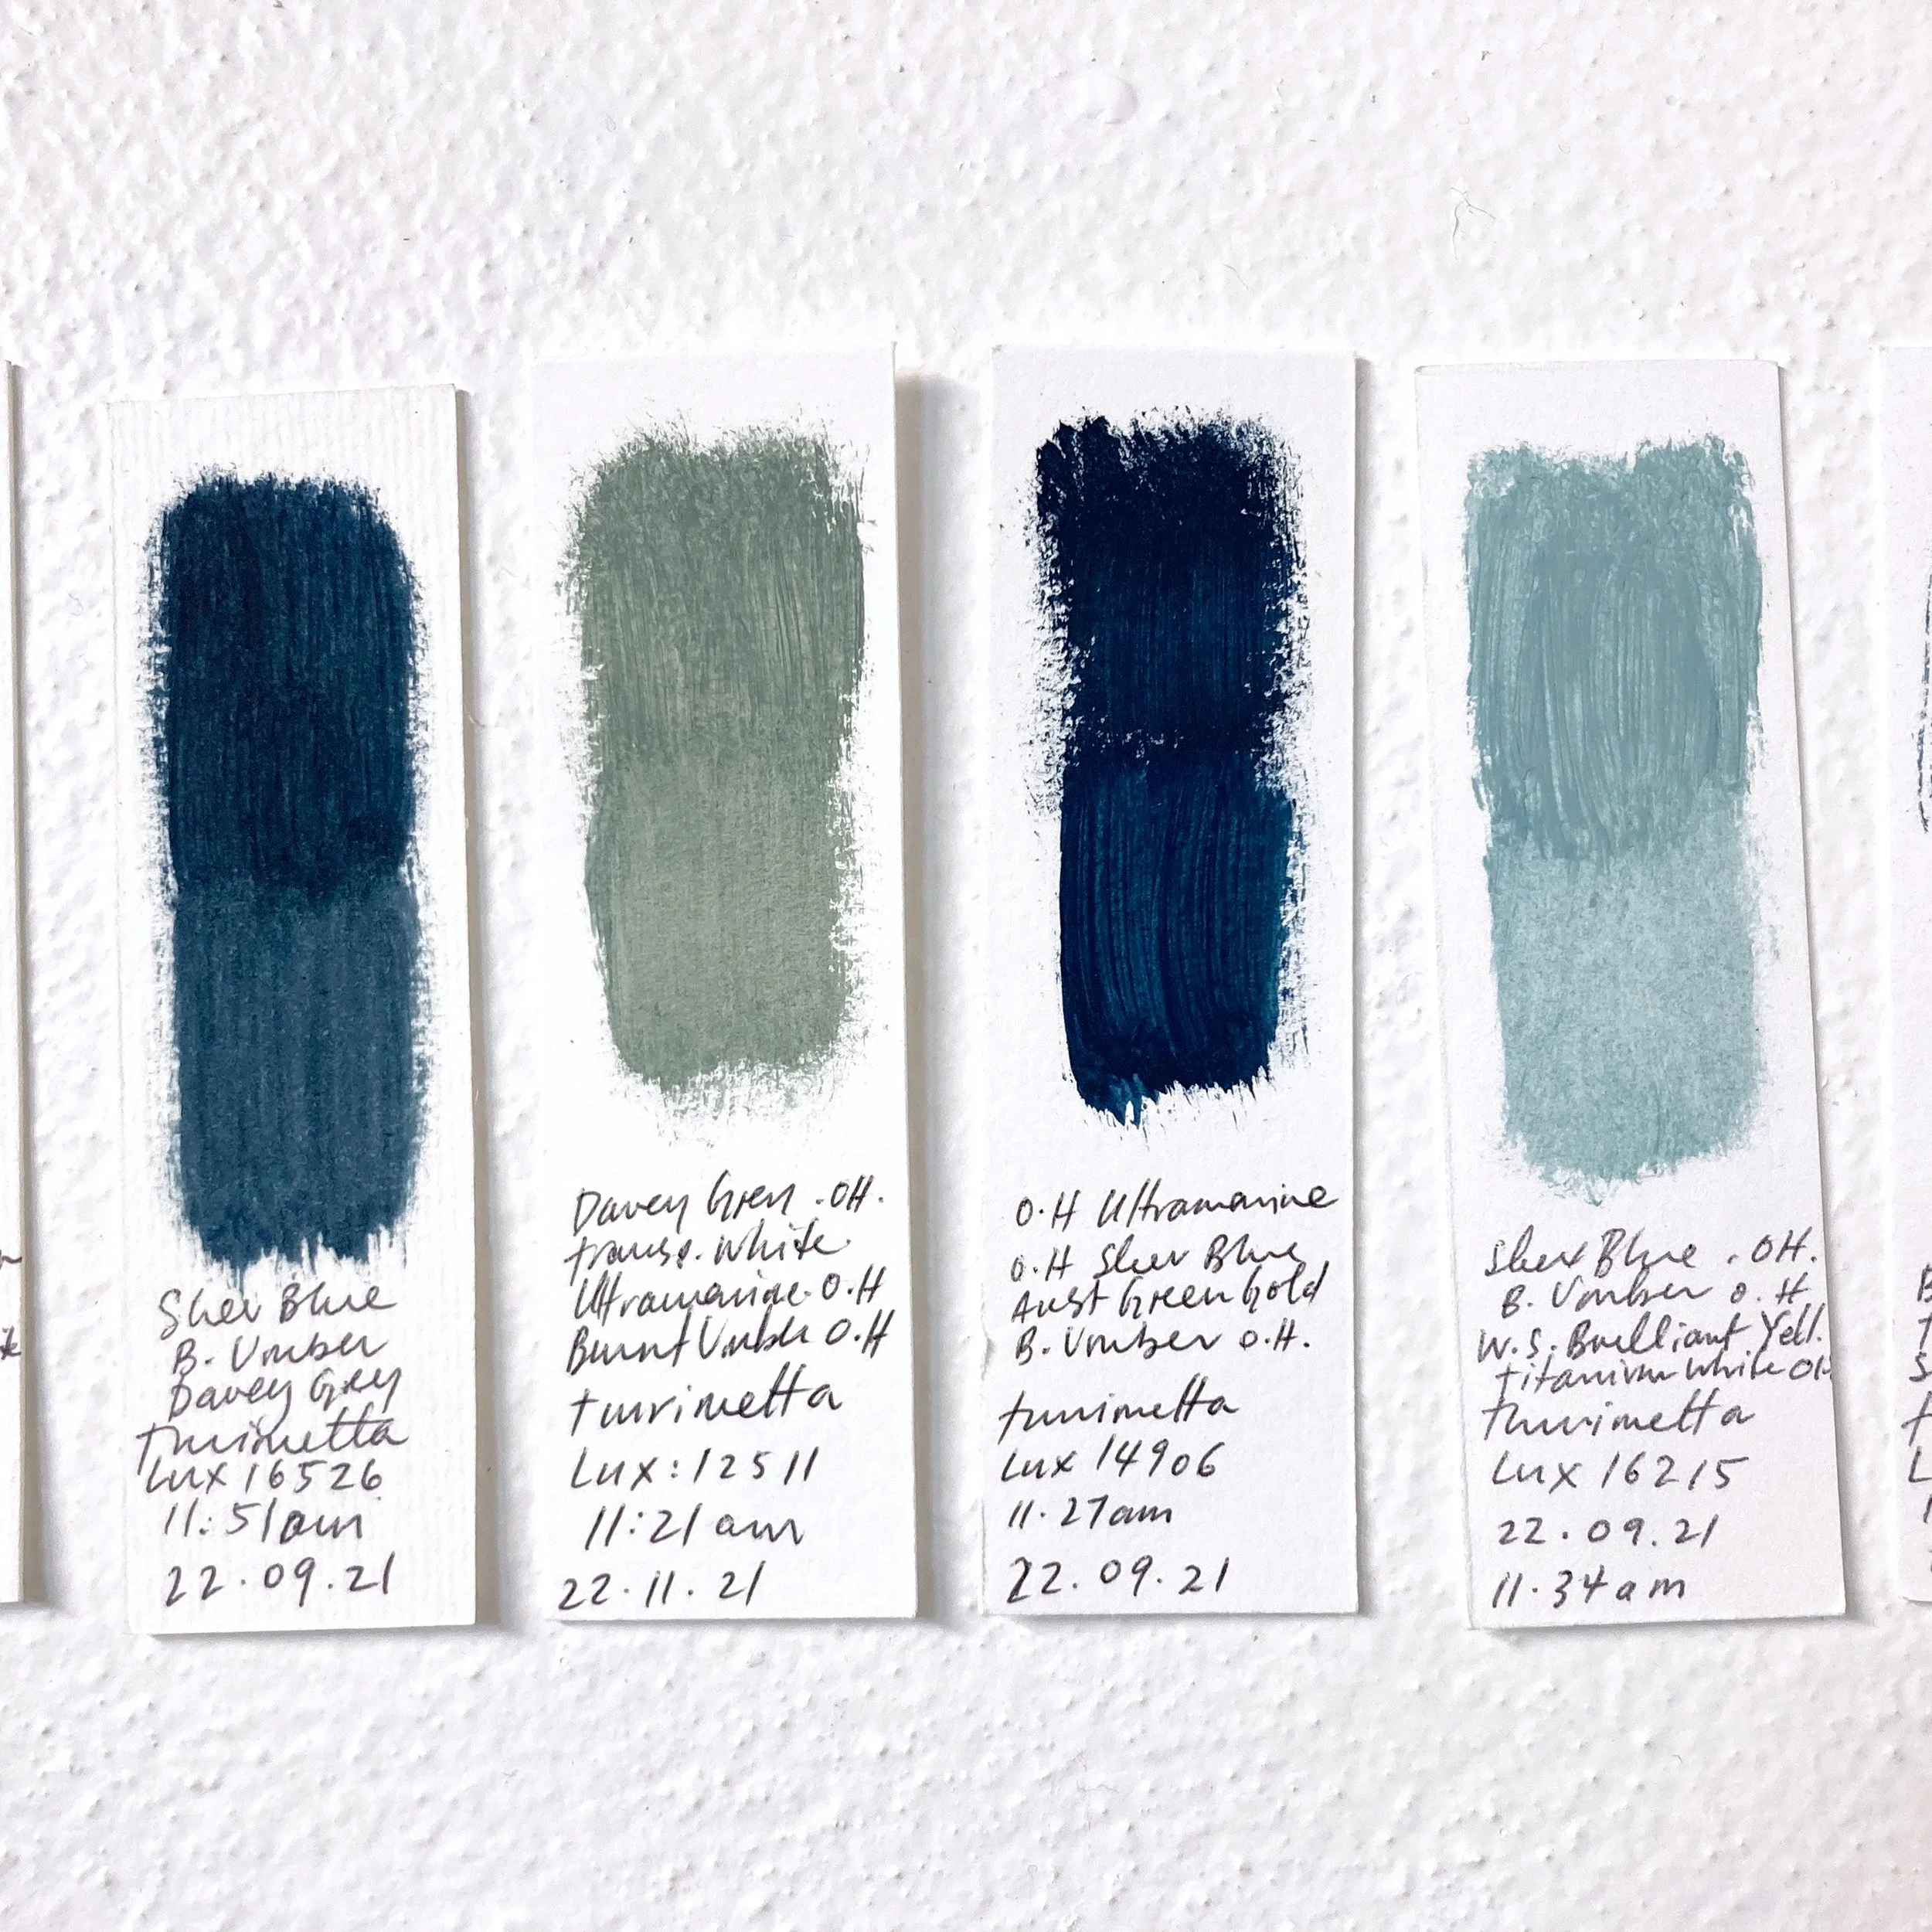 Sher Blue
B. Umber
Davey Grey
turimetta
Lux 16526
11:51am
22.09.21
Davey Grey .OH.
transp. white.
Ultramarine. O.H
Burnt Umber O.H
turrimetta
Lux: 12511
11:21 am
22.11.21
O.H Ultramarine
O.H Sher Blue
Aust Green Gold
B. Umber O.H.
turrimetta
Lux 14906
11.27am
22.09.21
Sher Blue . OH.
B. Umber O.H
W.S. Brilliant Yell.
titanium white OH
turrimetta
Lux 16215
22.09.21
11.34am